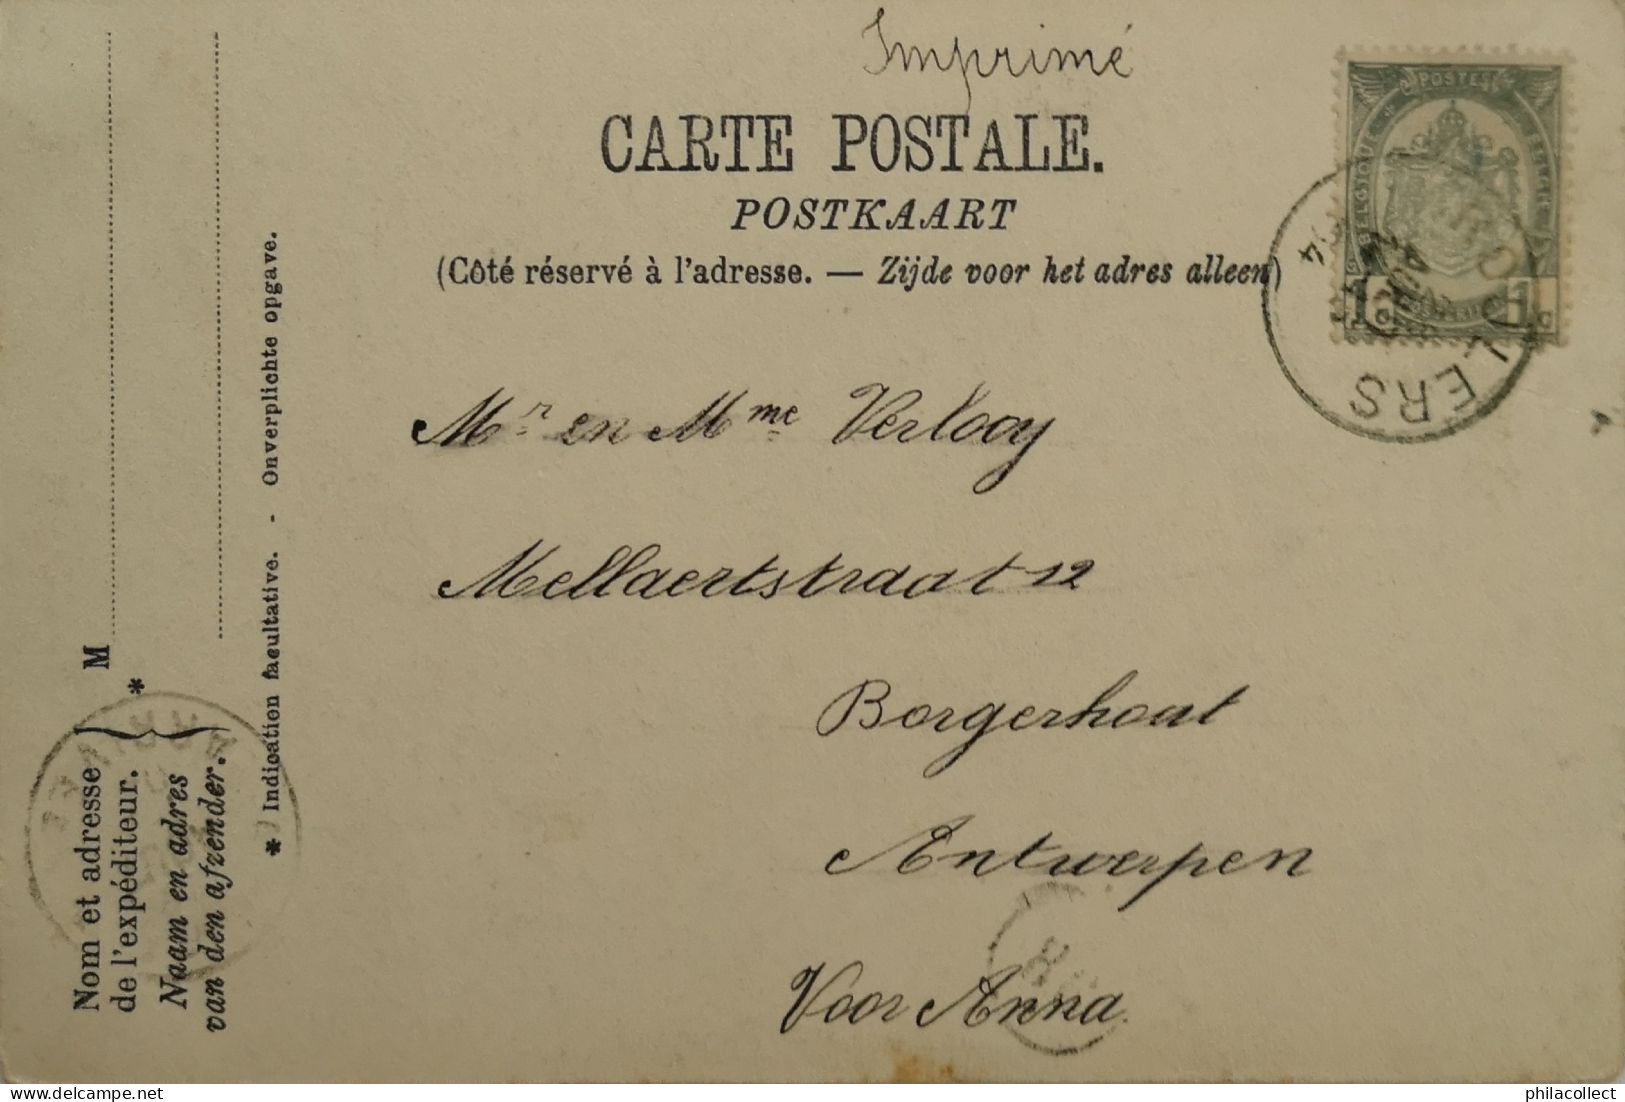 Imprimé
CARTE POSTALE.
POSTKAART
(Côté réservé à l'adresse. — Zijde voor het adres alleen)
POSTES
BELGIQUE
BELGIË
1c
1c
LERS
Mr. en Mme Verlooy
Mellaertstraat 12
Borgerhout
Antwerpen
Voor Anna.
M
*
Nom et adresse
de l'expéditeur.
Naam en adres
van den afzender.
* Indication facultative. - Onverplichte opgave.
philacollect